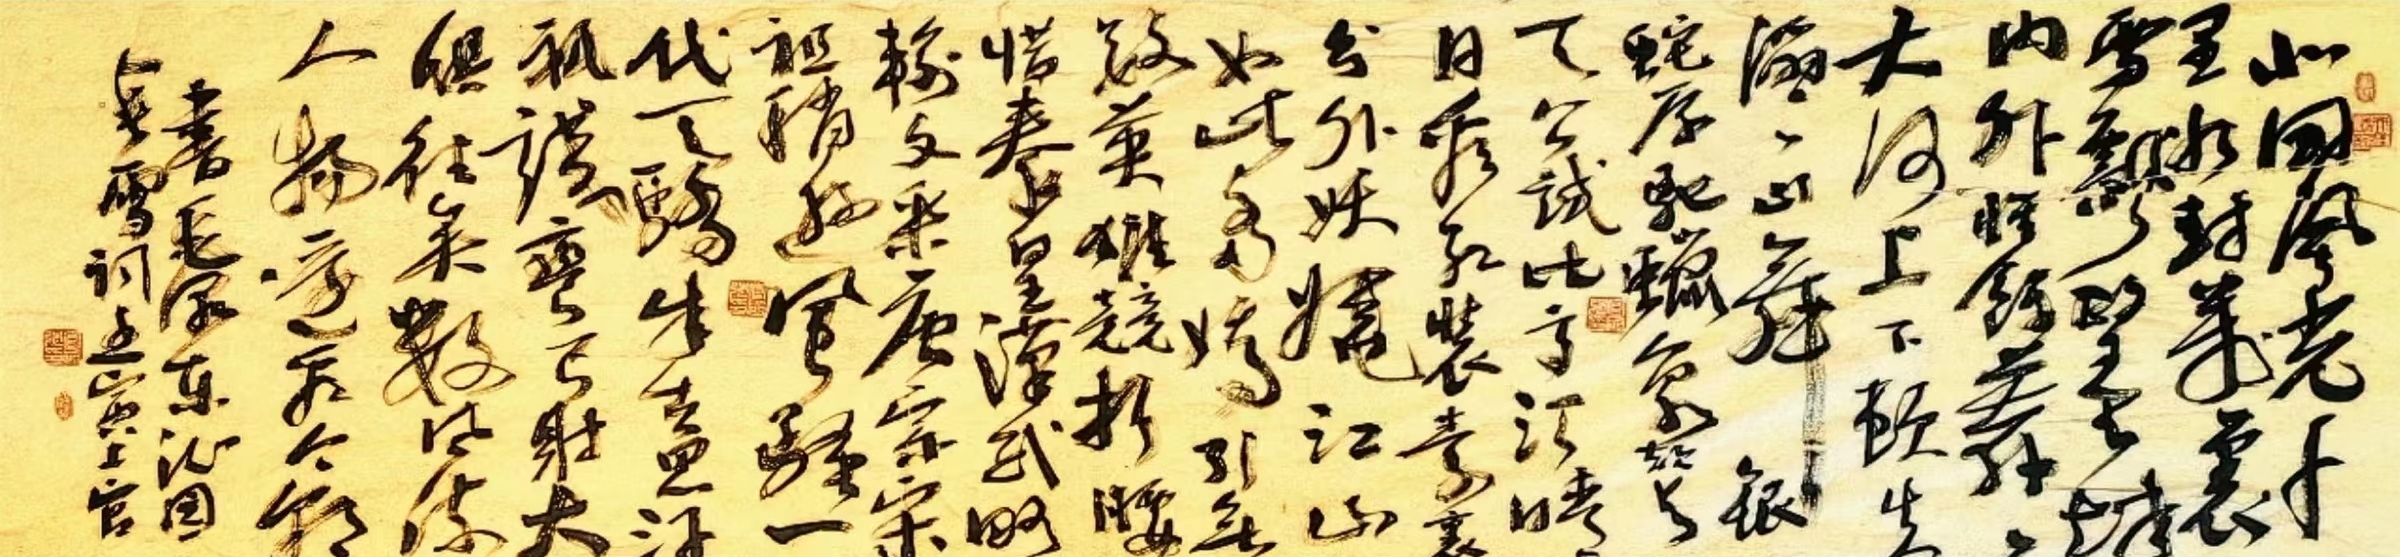 北国风光千
里冰封万里
雪飘望长城
内外惟馀莽莽
大河上下顿失
滔滔山舞银
蛇原驰蜡象欲与
天公试比高须晴
日看红装素裹
分外妖娆江山
如此多娇引无
数英雄竞折腰
惜秦皇汉武略
输文采唐宗宋
祖稍逊风骚一
代天骄成吉思汗
只识弯弓射大
俱往矣数风流
人物还看今朝
书毛泽东沁园
春雪词